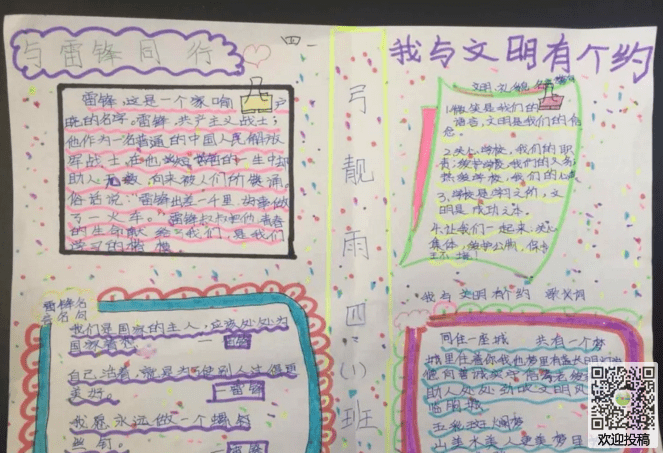 与雷锋同行
四
雷锋,这是一个家喻户
晓的名字。雷锋,共产主义战士;
他作为一名普通的中国人民解放
军战士,在他短暂的一生中却
助人无数,
俗话说:“雷锋出差一千里,好事做
了一火车。”雷锋叔叔把他青春
的生命献给了我们,是我们
学习的楷模
雷锋名
言名句
我们是国家的主人,应该处处为
国家着想
雷锋
自己活着,就是为了使别人过得更
美好。
雷锋
我愿永远做一个螺丝
丝钉。
弓靓雨四(1)班
我与文明有个约
文明礼貌
1.微笑是我们的
语言,文明是我们的信
念。
2.关心学校,我们的职
责;爱护学校,我们的义务;
热爱学校,我们的心
3.学校是学习之所,文
明是成功之本。
4.让我们一起来,关心
集体,爱护公物,
我与文明有个约 歌词
同住一座城 共有一个梦
助人处处
五彩斑斓梦
山美水美人更美梦里
欢迎投稿